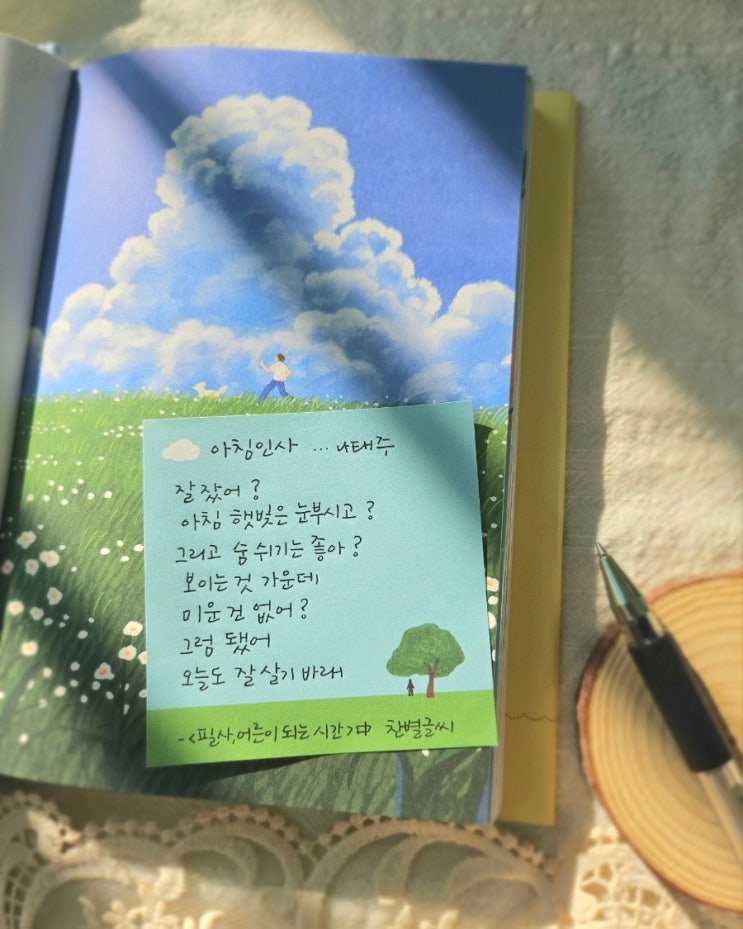 아침인사 ... 나태주
잘 잤어?
아침 햇빛은 눈부시고?
그리고 숨 쉬기는 좋아?
보이는 것 가운데
미운 건 없어?
그럼 됐어
오늘도 잘 살기 바래
-<필사,어른이 되는 시간>中 찬별글씨